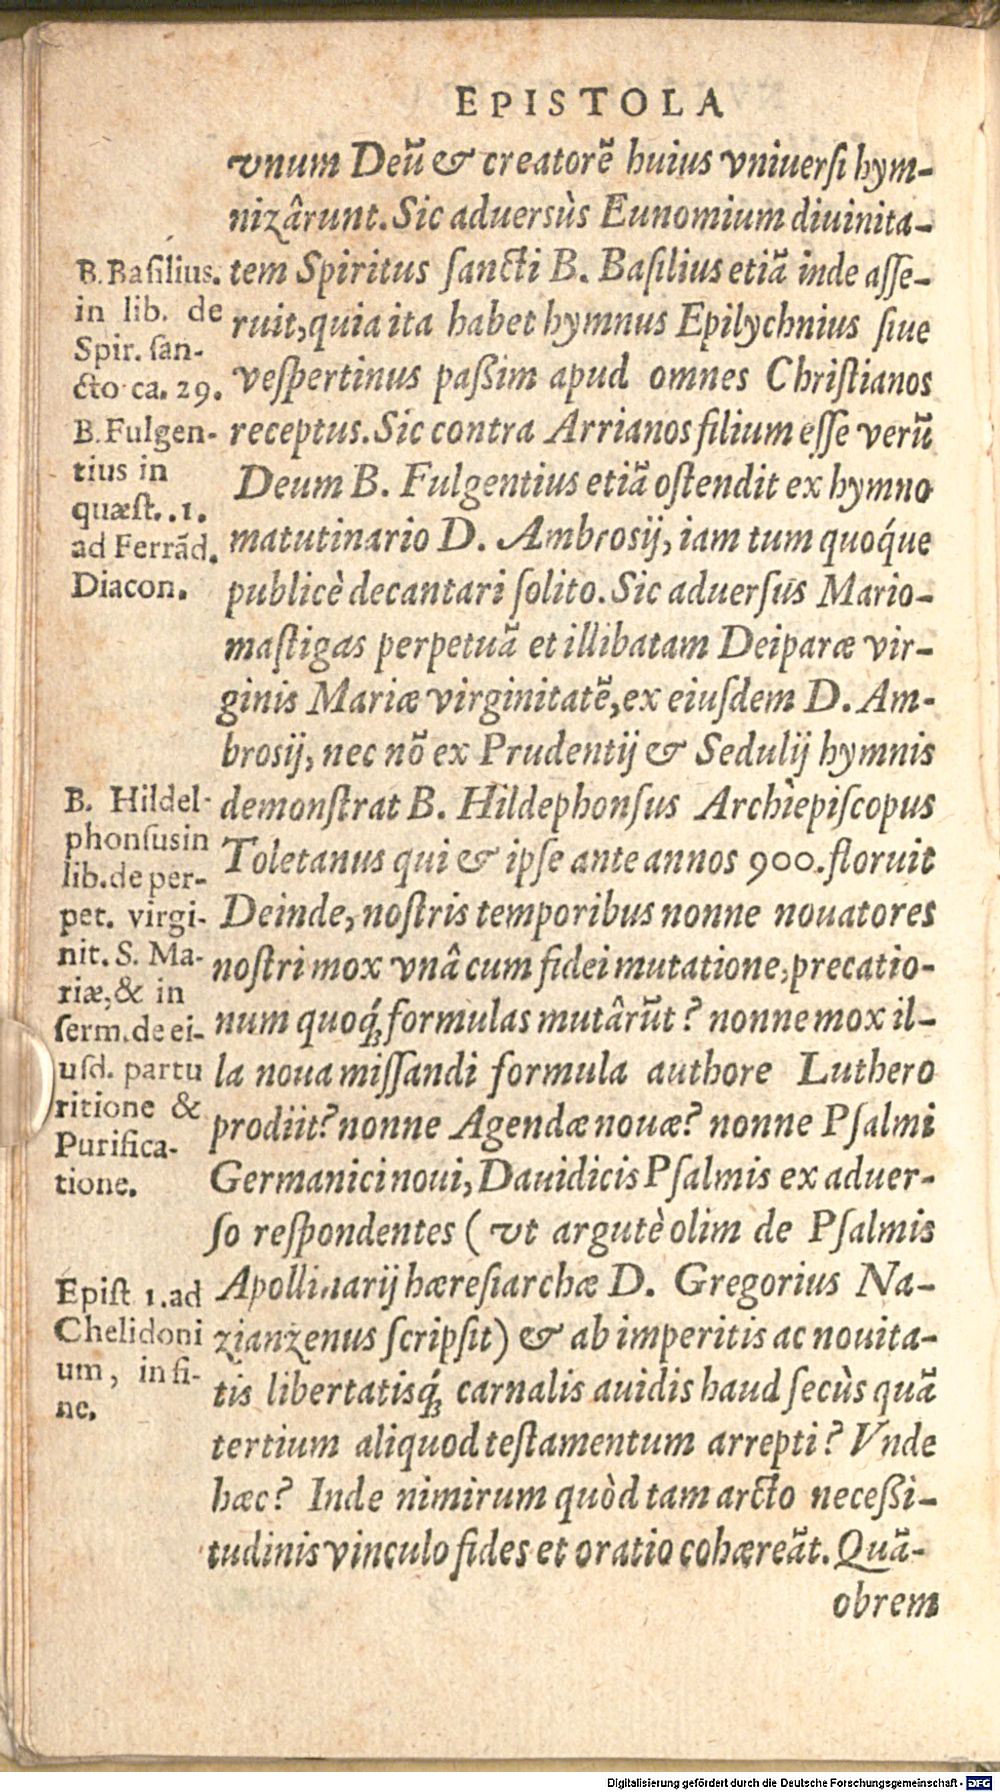 EPISTOLA
vnum Deũ & creatorẽ huius vniuersi hym-
nizârunt. Sic aduersùs Eunomium diuinita-
tem Spiritus sancti B. Basilius etiã inde asse-
ruit, quia ita habet hymnus Epilychnius siue
vespertinus paßim apud omnes Christianos
receptus. Sic contra Arrianos filium esse verũ
Deum B. Fulgentius etiã ostendit ex hymno
matutinario D. Ambrosij, iam tum quoq́ue
publicè decantari solito. Sic aduersus Mario-
mastigas perpetuã et illibatam Deiparæ vir-
ginis Mariæ virginitatẽ, ex eiusdem D. Am-
brosij, nec nõ ex Prudentij & Sedulij hymnis
demonstrat B. Hildephonsus Archièpiscopus
Toletanus qui & ipse ante annos 900. floruit
Deinde, nostris temporibus nonne nouatores
nostri mox vnâ cum fidei mutatione, precatio-
num quoq́; formulas mutârũt? nonne mox il-
la noua missandi formula authore Luthero
prodiit? nonne Agendæ nouæ? nonne Psalmi
Germanici noui, Dauidicis Psalmis ex aduer-
so respondentes ( vt argutè olim de Psalmis
Apollinarij hæresiarchæ D. Gregorius Na-
zianzenus scripsit) & ab imperitis ac nouita-
tis libertatisq́; carnalis auidis haud secùs quã
tertium aliquod testamentum arrepti? Vnde
hæc? Inde nimirum quòd tam arcto neceßi-
tudinis vinculo fides et oratio cohæreãt. Quã-
obrem
B. Basilius.
in lib. de
Spir. san-
cto ca. 29.
B. Fulgen-
tius in
quæst. .1.
ad Ferrãd.
Diacon.
B. Hildel-
phonsus in
lib. de per-
pet. virgi-
nit. S. Ma-
riæ, & in
serm. de ei-
usd. partu
ritione &
Purifica-
tione.
Epist 1. ad
Chelidoni
um, in fi-
ne.
Digitalisierung gefördert durch die Deutsche Forschungsgemeinschaft - DFG